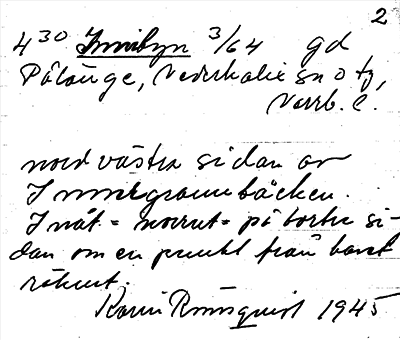 2
430 Innibyn 3/64 gd
Pålänge, Nederkalix sn o tg,
Norrb. l.
nordvästra sidan av
Innergrannbäcken.
Inåt = norrut = på bortre si-
dan om en punkt från havet
räknat.
Karin Rönnquist 1945